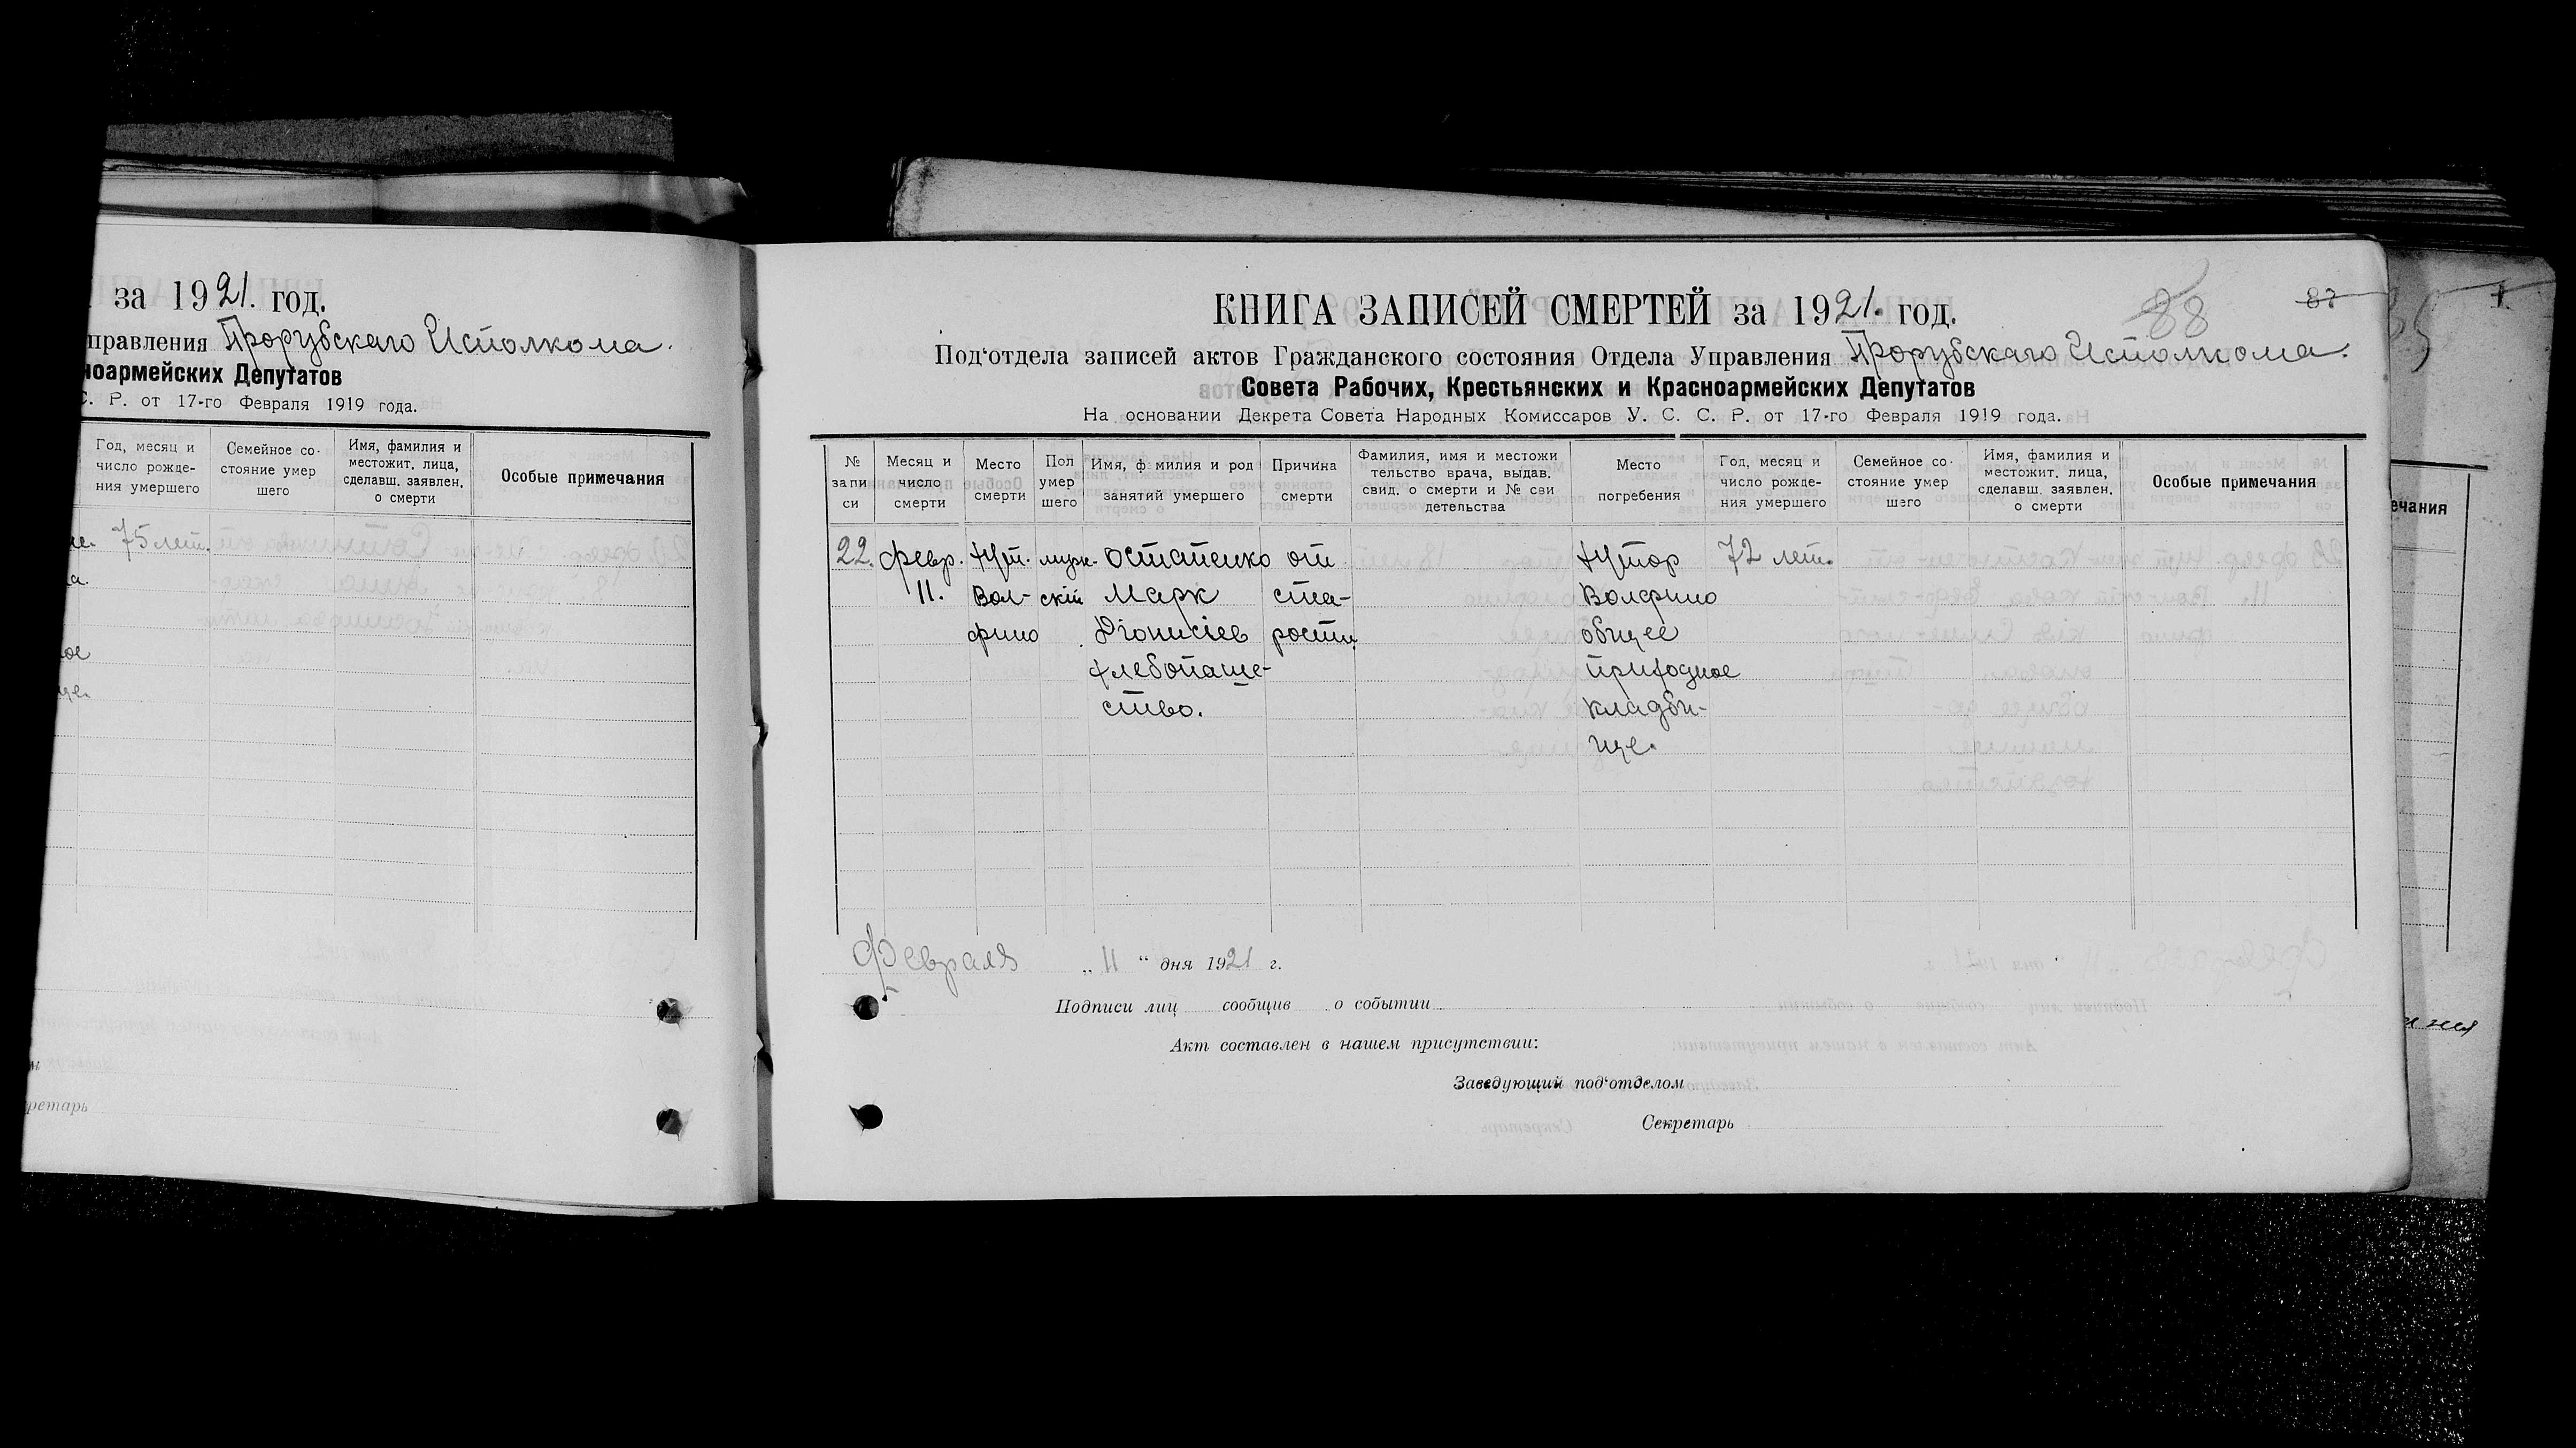 за 1921. год.
правления Прорубскаго Исполкома.
ноармейских Депутатов
С. Р. от 17-го Февраля 1919 года.
Год, месяц и число рожде- ния умершего
Семейное со- стояние умер шего
Имя, фамилия и местожит. лица, сделавш. заявлен. о смерти
Особые примечания
75 лет.
ретарь
КНИГА ЗАПИСЕЙ СМЕРТЕЙ за 1921. год.
88
87
Под‘отдела записей актов Гражданского состояния Отдела Управления Прорубскаго Исполкома.
Совета Рабочих, Крестьянских и Красноармейских Депутатов
На основании Декрета Совета Народных Комиссаров У. С. С. Р. от 17-го Февраля 1919 года.
№ запи си
Месяц и число смерти
Место смерти
Пол умер шего
Имя, ф милия и род занятий умершего
Причина смерти
Фамилия, имя и местожи тельство врача, выдав. свид. о смерти и № сви детельства
Место погребения
Год, месяц и число рожде- ния умершего
Семейное со- стояние умер шего
Имя, фамилия и местожит. лица, сделавш. заявлен. о смерти
Особые примечания
22. февр. хут. муж- Остапенко от хутор 72 лет.
11. Вол- скій Марк ста- Волфино
фино Діонисіев рости. общее
хлебопаше- приходное
ство. кладби-
ще.
Февраля „11“ дня 1921 г.
Подписи лиц сообщив о событии
Акт составлен в нашем присутствии:
Заведующий под‘отделом
Секретарь
ечания